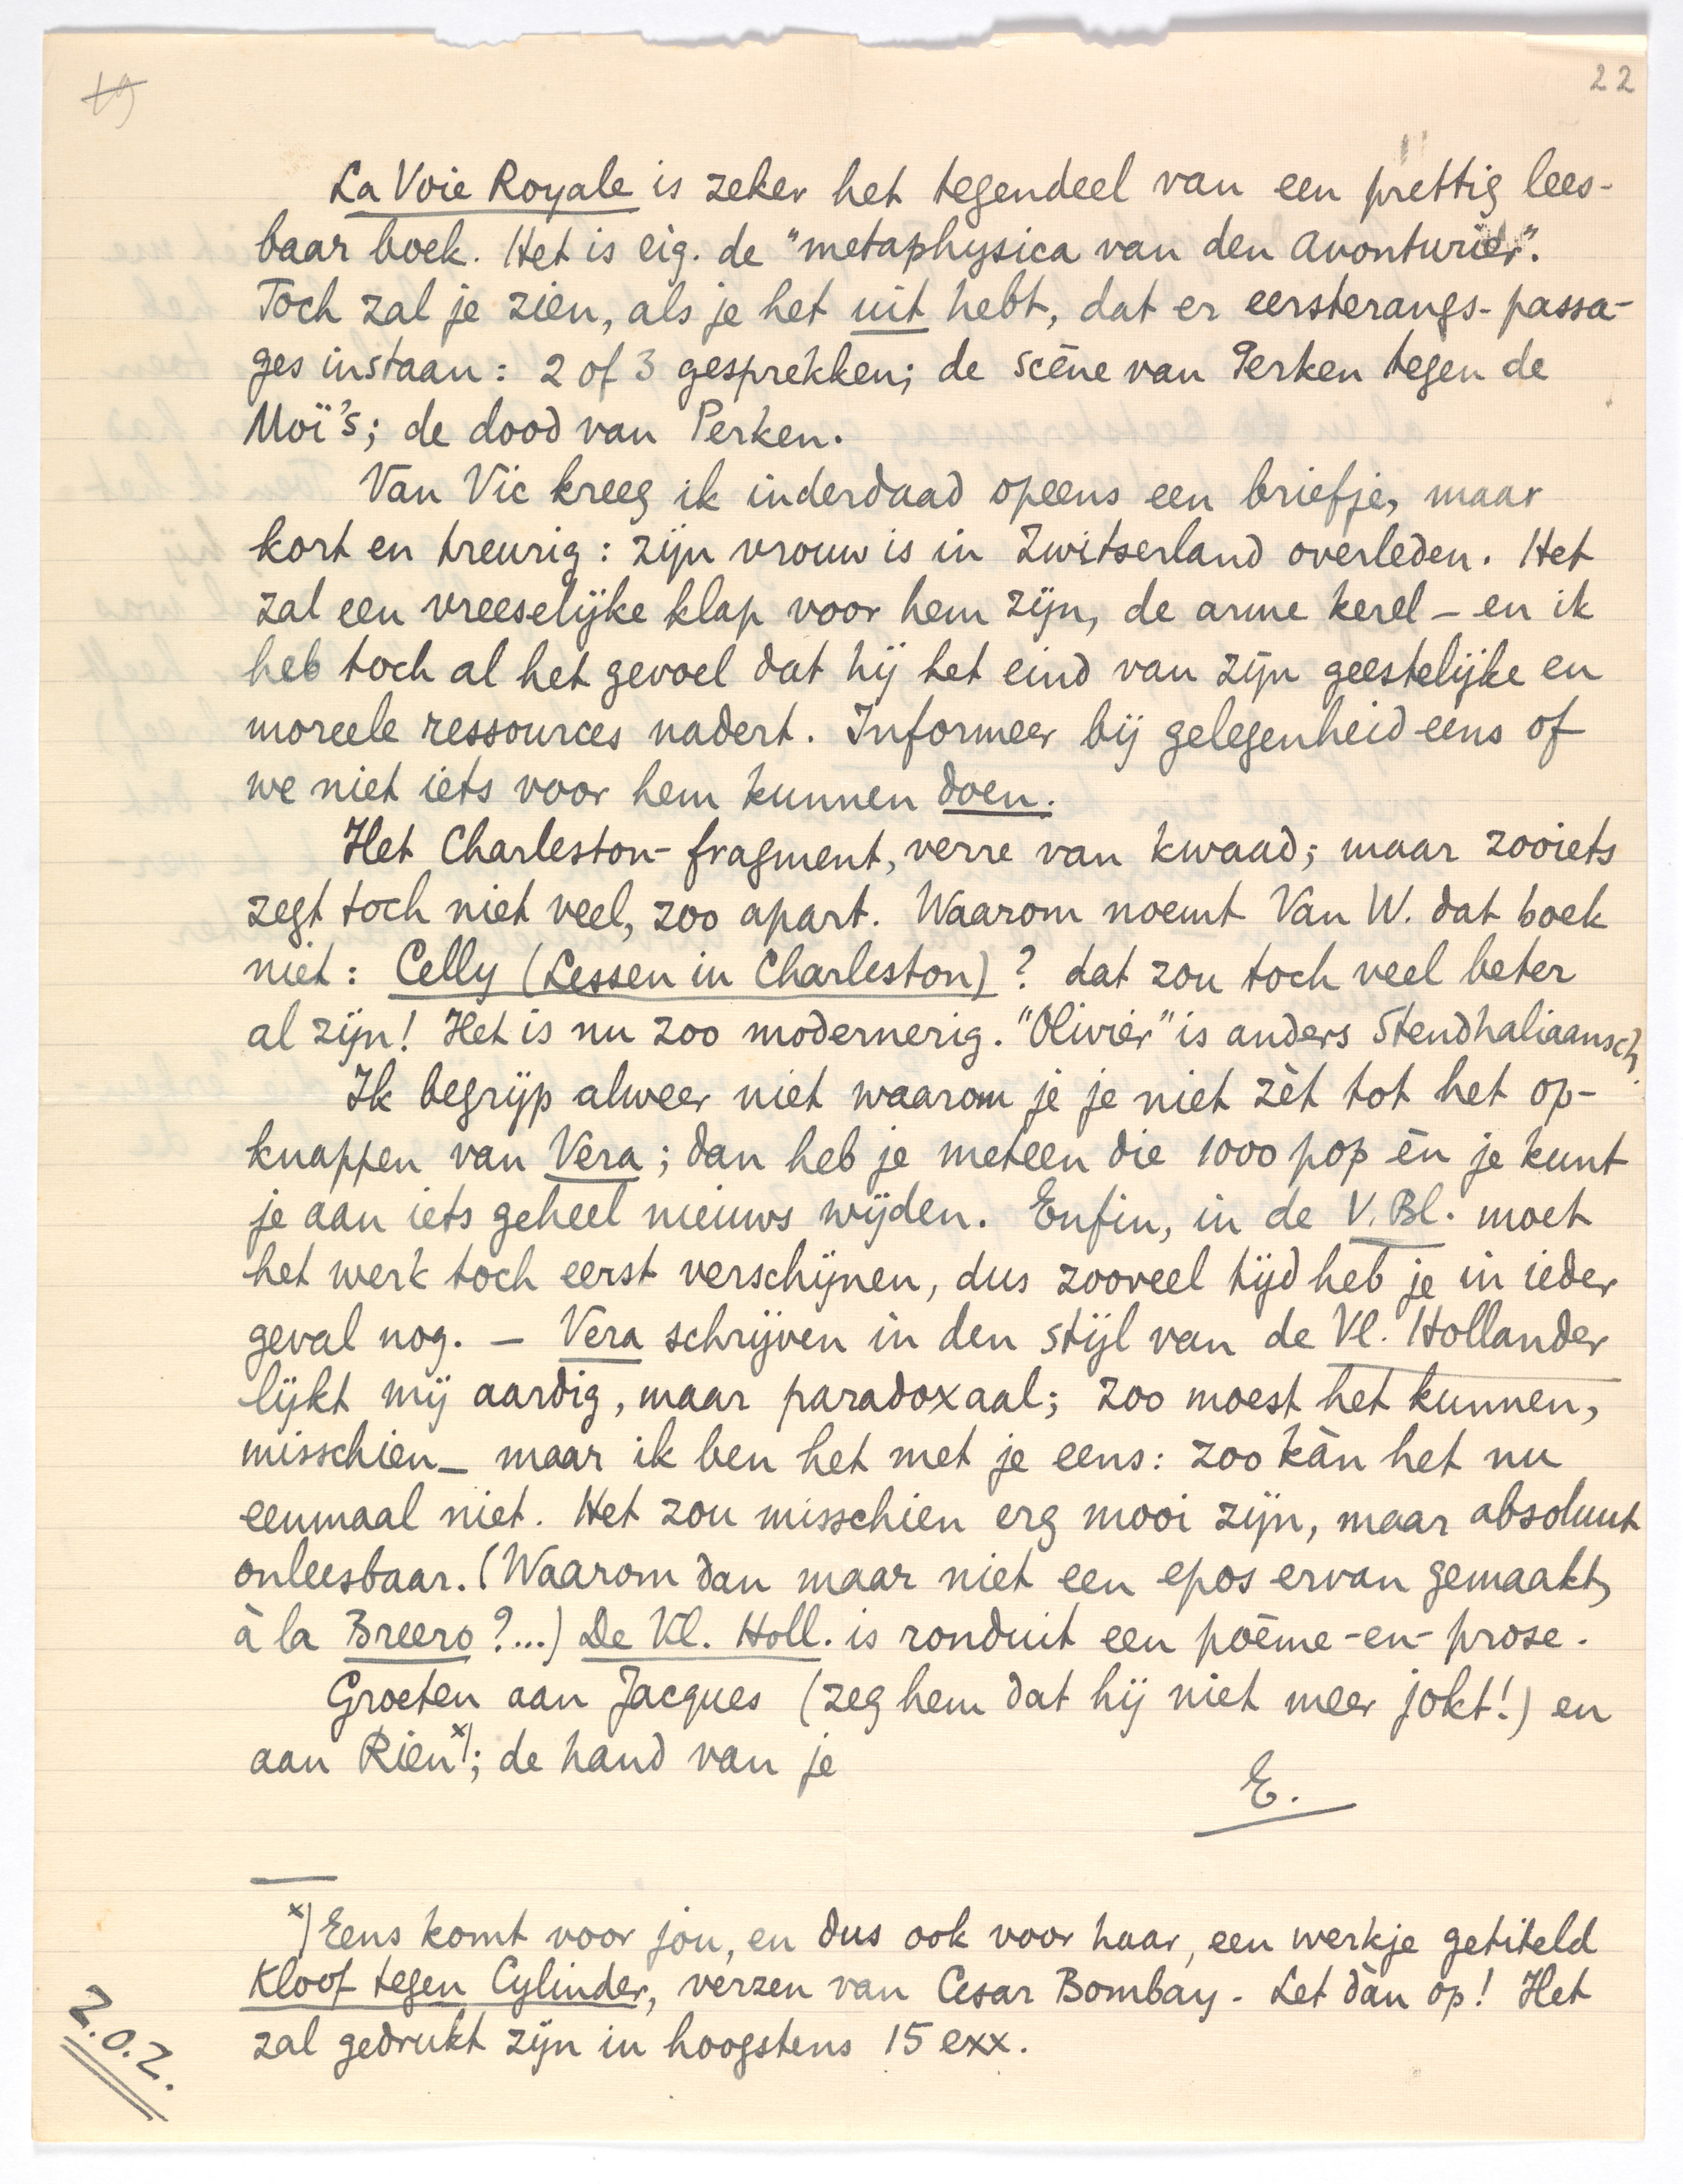 19
22
La Voie Royale is zeker het tegendeel van een prettig lees-
baar boek. Het is eig. de "metaphysica van den avonturier".
Toch zal je zien, als je het uit hebt, dat er eersterangs-passa-
ges instaan: 2 of 3 gesprekken; de scène van Perken tegen de
Moï's; de dood van Perken.
Van Vic kreeg ik inderdaad opeens een briefje, maar
kort en treurig: zijn vrouw is in Zwitserland overleden. Het
zal een vreeselijke klap voor hem zijn, de arme kerel – en ik
heb toch al het gevoel dat hij het eind van zijn geestelijke en
moreele ressources nadert. Informeer bij gelegenheid eens of
we niet iets voor hem kunnen doen.
Het Charleston-fragment, verre van kwaad; maar zooiets
zegt toch niet veel, zoo apart. Waarom noemt Van W. dat boek
niet: Celly (Lessen in Charleston)? dat zou toch veel beter
al zijn! Het is nu zoo modernerig. "Olivier" is anders Stendhaliaansch.
Ik begrijp alweer niet waarom je je niet zèt tot het op-
knappen van Vera; dan heb je meteen die 1000 pop èn je kunt
je aan iets geheel nieuws wijden. Enfin, in de V. Bl. moet
het werk toch eerst verschijnen, dus zooveel tijd heb je in ieder
geval nog. – Vera schrijven in den stijl van de Vl. Hollander
lijkt mij aardig, maar paradoxaal; zoo moest het kunnen,
misschien – maar ik ben het met je eens: zoo kàn het nu
eenmaal niet. Het zou misschien erg mooi zijn, maar absoluut
onleesbaar. (Waarom dan maar niet een epos ervan gemaakt,
à la Breero?...) De Vl. Holl. is ronduit een poème-en-prose.
Groeten aan Jacques (zeg hem dat hij niet meer jokt!) en
aan Rien x); de hand van je
E.
x) Eens komt voor jou, en dus ook voor haar, een werkje getiteld
Kloof tegen Cylinder, verzen van Cesar Bombay. Let dàn op! Het
zal gedrukt zijn in hoogstens 15 exx.
Z.O.Z.